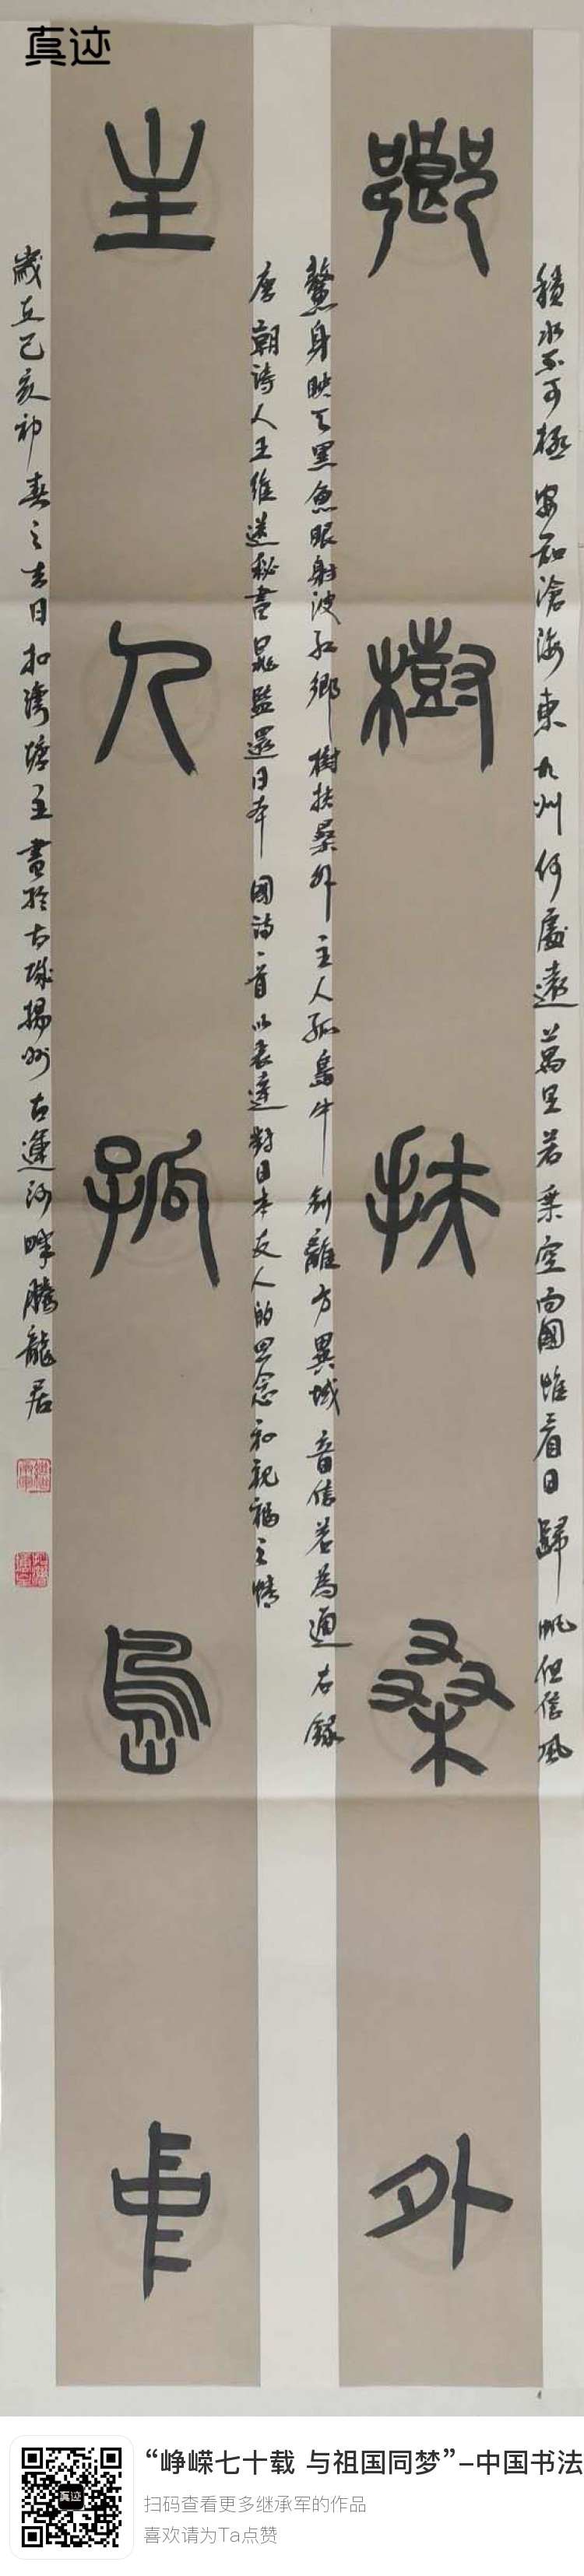 真迹
積水不可極安知滄海東九州何處遠萬里若乘空向國惟看日歸帆但信風
鄉樹扶桑外
鰲身映天黑魚眼射波紅鄉樹扶桑外主人孤島中別離方異域音信若為通右錄
唐朝詩人王維送秘書晁監還日本國詩一首以表達對日本友人的思念和祝福之情
主人孤島中
歲在己亥初春之吉日扣塘主書於古城揚州古運河畔騰龍居
“峥嵘七十载 与祖国同梦”-中国书法
扫码查看更多继承军的作品
喜欢请为Ta点赞
真迹